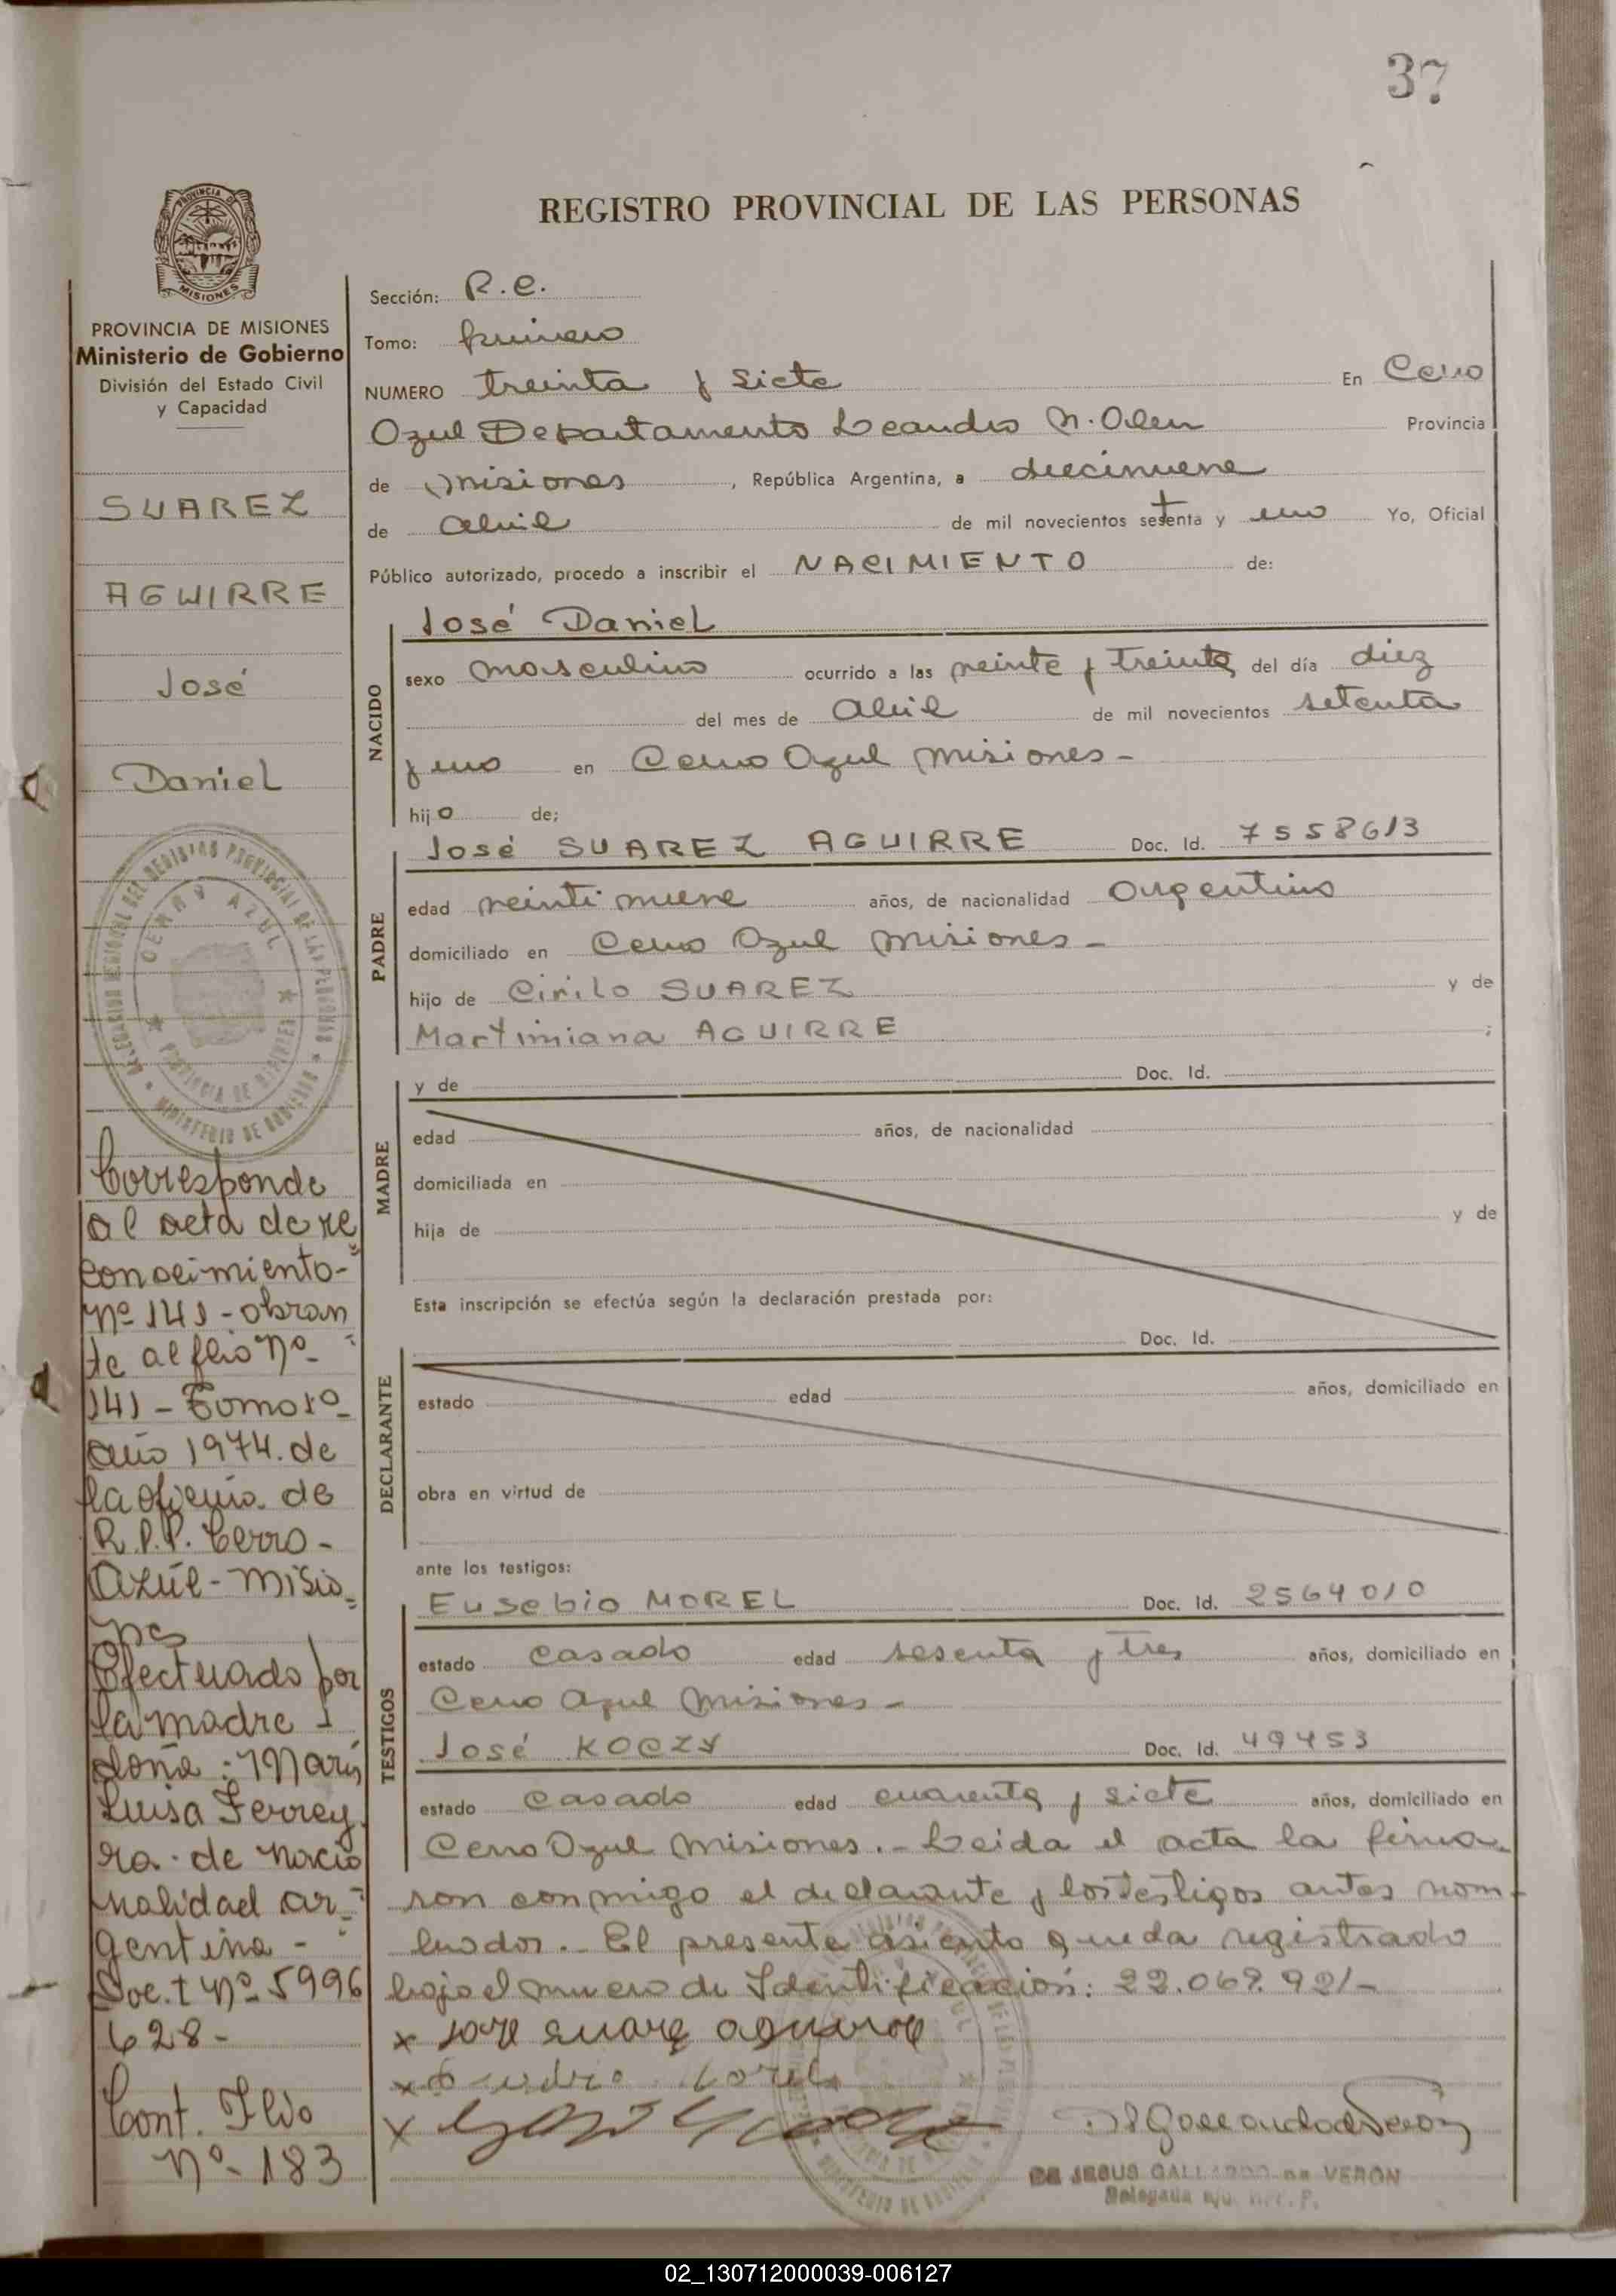 37
REGISTRO PROVINCIAL DE LAS PERSONAS
PROVINCIA DE MISIONES
Ministerio de Gobierno
División del Estado Civil
y Capacidad
SUAREZ
AGUIRRE
José
Daniel
Corresponde
al acta de re
conocimiento-
nº 141 - obran
te al flio nº
141 - Tomo 1º
año 1974. de
la oficina de
R.P.P. Cerro -
Azúl - Misio
nes
Efectuado por
la madre
doña: María
Luisa Ferrey
ra. de nacio
nalidad ar-
gentina -
Doc. I Nº 5996
628-
Cont. Flio
nº 183
Sección: R.e.
Tomo: primero
NUMERO treinta y siete En Cerro
Azul Departamento Leandro N. Alem Provincia
de misiones, República Argentina, a diecinueve
de abril de mil novecientos setenta y uno Yo, Oficial
Público autorizado, procedo a inscribir el NACIMIENTO de:
NACIDO
José Daniel
sexo masculino ocurrido a las veinte y treinta del día diez
del mes de abril de mil novecientos setenta
y uno en Cerro Azul misiones -
hijo de;
PADRE
José SUAREZ AGUIRRE Doc. Id. 7558613
edad veintinueve años, de nacionalidad argentino
domiciliado en Cerro Azul misiones -
hijo de Cirilo SUAREZ y de
Martimiana AGUIRRE ;
MADRE
y de Doc. Id.
edad años, de nacionalidad
domiciliada en
hija de y de
Esta inscripción se efectúa según la declaración prestada por:
DECLARANTE
Doc. Id.
estado edad años, domiciliado en
obra en virtud de
ante los testigos:
TESTIGOS
Eusebio MOREL Doc. Id. 2564010
estado casado edad sesenta y tres años, domiciliado en
Cerro Azul misiones -
José KOCZY Doc. Id. 49453
estado casado edad cuarenta y siete años, domiciliado en
Cerro Azul misiones. - Leida el acta la firma
ron conmigo el declarante y los testigos antes nom-
brados. - El presente asiento queda registrado
bajo el numero de Identificación: 22.067.921-
x jose suarez aguirre
x
x
DE JESUS GALLARDO de VERON
Delegada
02_130712000039-006127